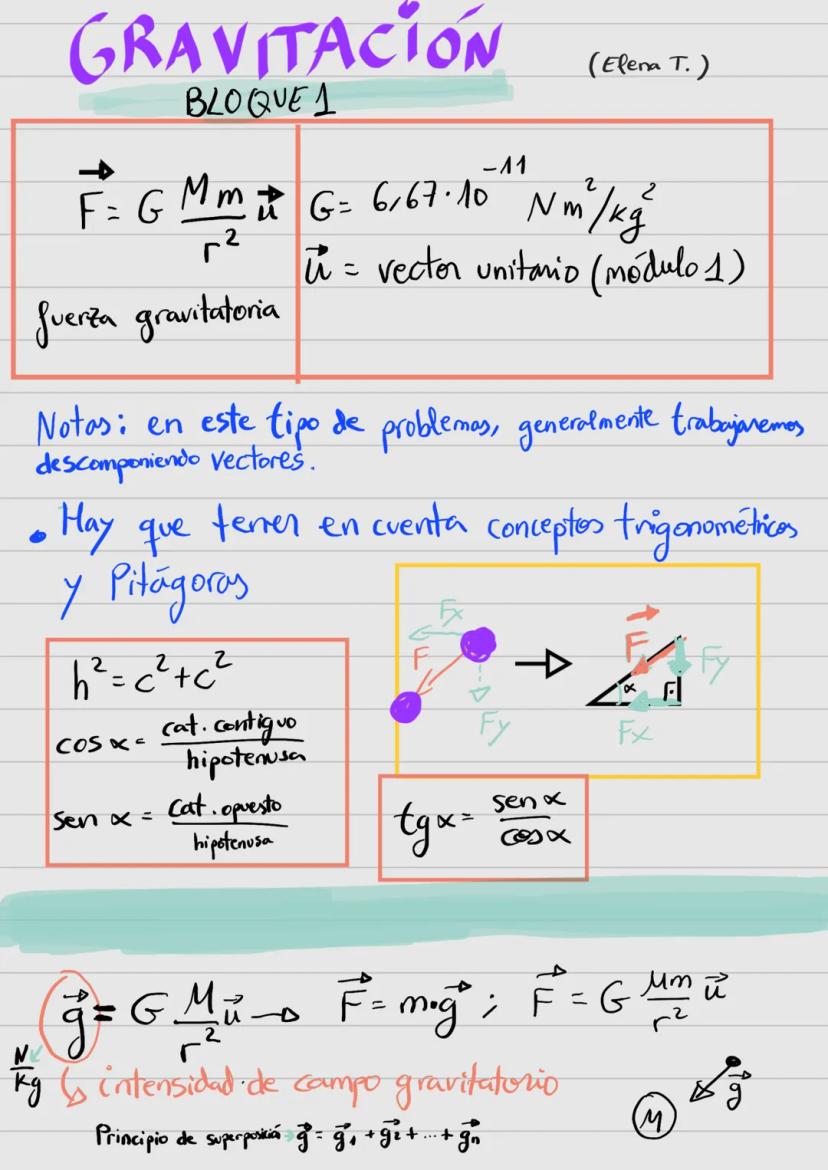 GRAVITACIÓN
(Elena T.)
BLOQUE 1
F⃗ = G Mm/r² u⃗
fuerza gravitatoria
G = 6,67·10⁻¹¹ Nm²/kg²
u⃗ = vector unitario (módulo 1)
Notas: en este tipo de problemas, generalmente trabajaremos
descomponiendo vectores.
• Hay que tener en cuenta conceptos trigonométricos
y Pitágoras
h² = c² + c²
cos α = cat. contiguo/hipotenusa
sen α = cat. opuesto/hipotenusa
Fx
F
Fy
F⃗
Fy
α
Fx
tg α = sen α/cos α
g⃗ = G M/r² u⃗ → F⃗ = m·g⃗ ; F⃗ = G Mm/r² u⃗
N/Kg
↳ intensidad de campo gravitatorio
M
g⃗
Principio de superposición → g⃗ = g⃗₁ + g⃗₂ + ... + g⃗n